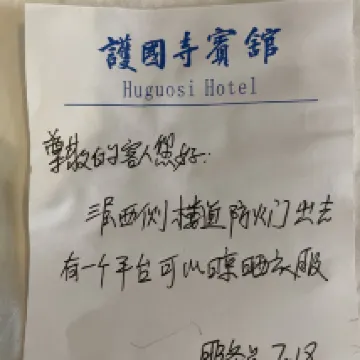 護國寺賓舘
Huguosi Hotel
尊敬的客人您好:
三层西侧楼道防火门出去
有一个平台可以晾晒衣服
服务员 7.18